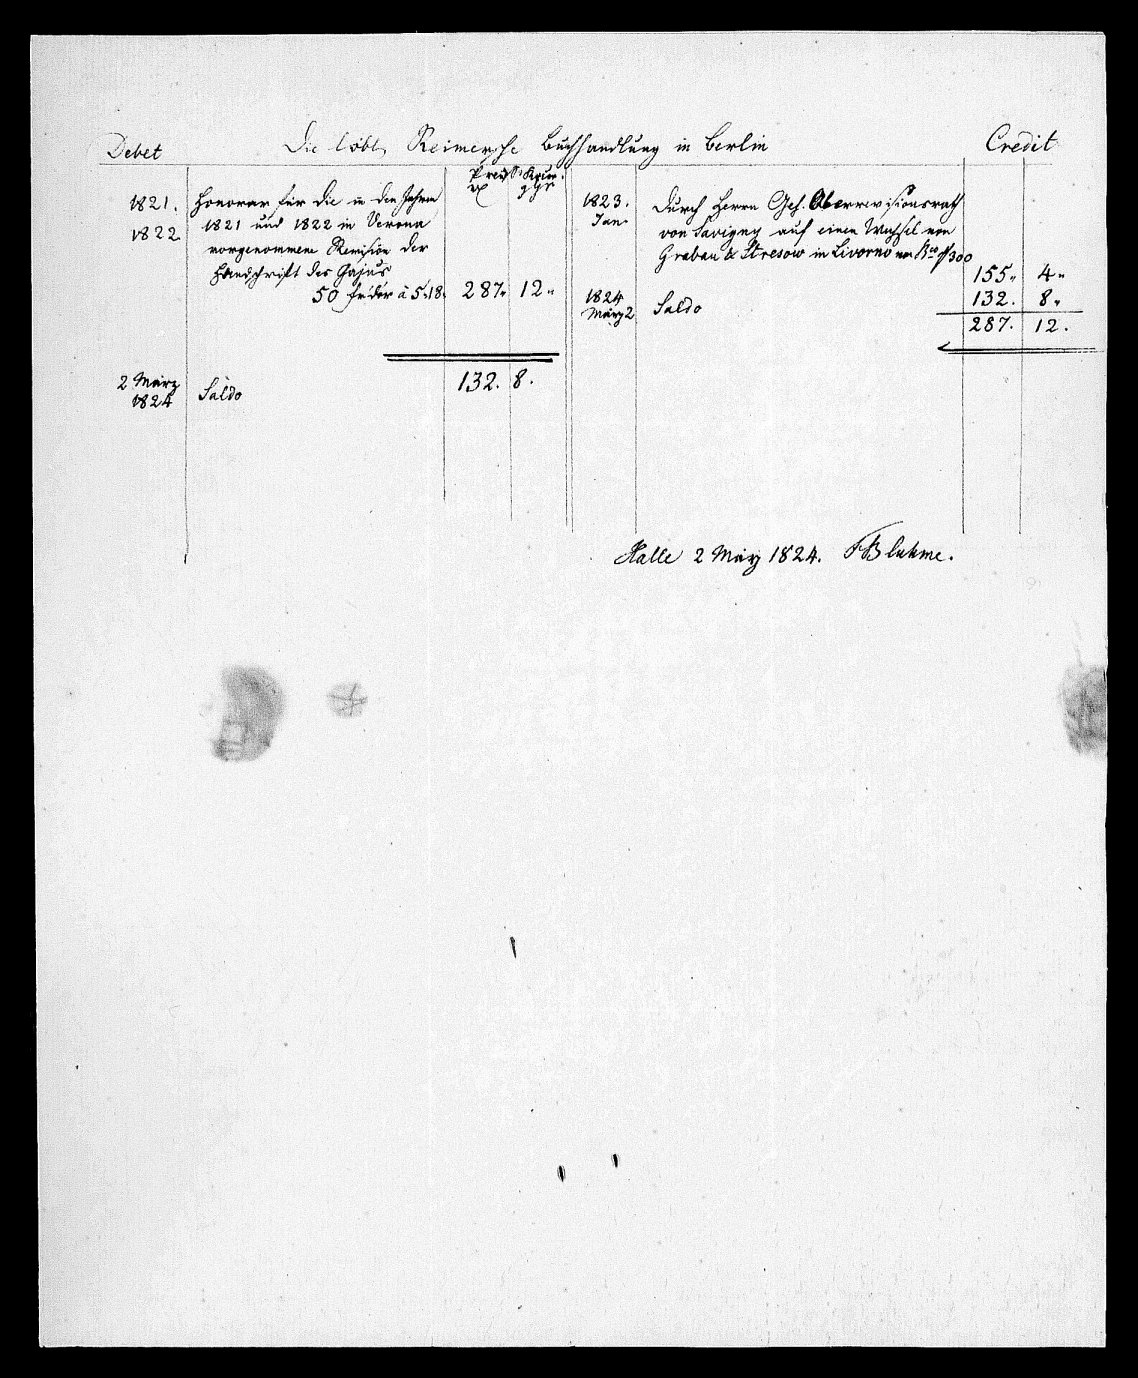 Debet
Die löbl. Reimersche Buchhandlung in Berlin
Credit
Preuß. Kour.
gGr
1821.
1822
Honorar für die in den Jahren
1821 und 1822 in Verona
vorgenommene Revision der
Handschrift des Gajus
50 fr'dor à 5.18. 287. 12.
2 März
1824
Saldo
132. 8.
1823.
Jan.
durch Herrn Geh. Oberrevisionsrath
von Savigny auf einen Wechsel von
Grabau & Stresow in Livorno von Bco 300
155. 4.
1824
März 2
Saldo
132. 8.
287. 12.
Halle 2 März 1824. FBluhme.